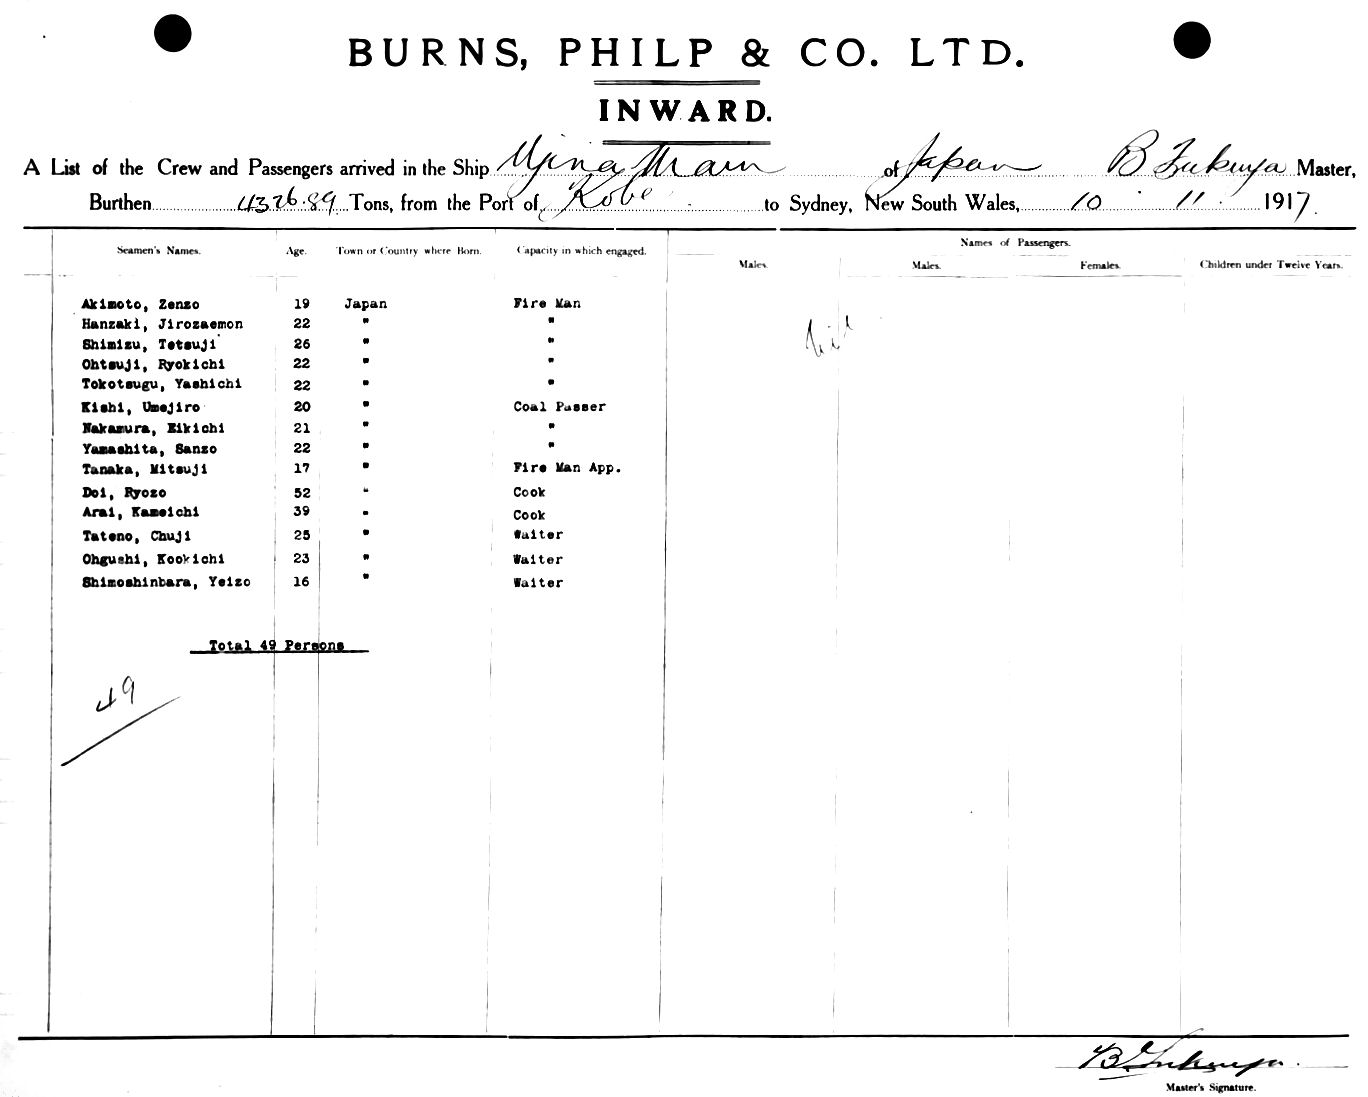 BURNS, PHILP & CO. LTD.
INWARD.
A List of the Crew and Passengers arrived in the Ship Ujina Maru of Japan B Fukuya Master,
Burthen 4326.89 Tons, from the Port of Kobe to Sydney, New South Wales, 10 . 11 . 1917.
Names of Passengers.
Seamen's Names. Age. Town or Country where Born. Capacity in which engaged. Males. Males. Females. Children under Twelve Years.
Akimoto, Zenzo 19 Japan Fire Man
Hanzaki, Jirozaemon 22 " "
Shimizu, Tetsuji 26 " "
Ohtsuji, Ryokichi 22 " "
Tokotsugu, Yashichi 22 " "
Kishi, Umejiro 20 " Coal Passer
Nakamura, Eikichi 21 " "
Yamashita, Sanzo 22 " "
Tanaka, Mitsuji 17 " Fire Man App.
Doi, Ryozo 52 " Cook
Arai, Kameichi 39 " Cook
Tateno, Chuji 25 " Waiter
Ohgushi, Kookichi 23 " Waiter
Shimoshinbara, Yeizo 16 " Waiter
Nil
Total 49 Persons
49
B Fukuya.
Master's Signature.